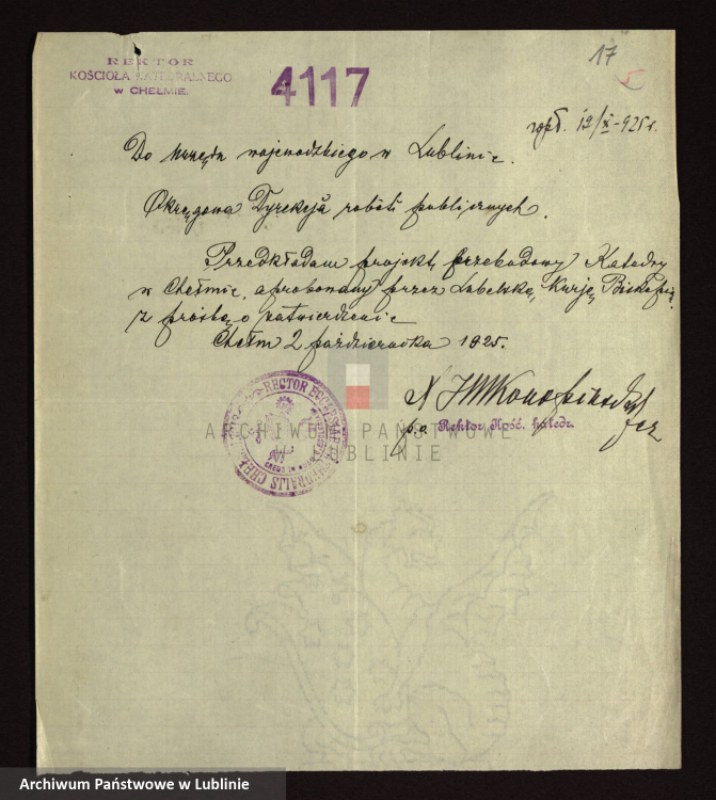 REKTOR
KOŚCIOŁA KATEDRALNEGO
W CHEŁMIE.
4117
17
5
12/X-925 r.
Do Urzędu wojewódzkiego w Lublinie.
Okręgowa Dyrekcja robót publicznych.
Przedkładam projekt przebudowy Katedry
w Chełmie, aprobowany przez Lubelską Kurję Biskupią
z prośbą o zatwierdzenie
Chełm 2 października 1925.
p.o Rektor Kość. katedr.
RECTOR ECCLESIAE CATHEDRALIS CHEŁ
ARCHIWUM PAŃSTWOWE
W LUBLINIE
Archiwum Państwowe w Lublinie